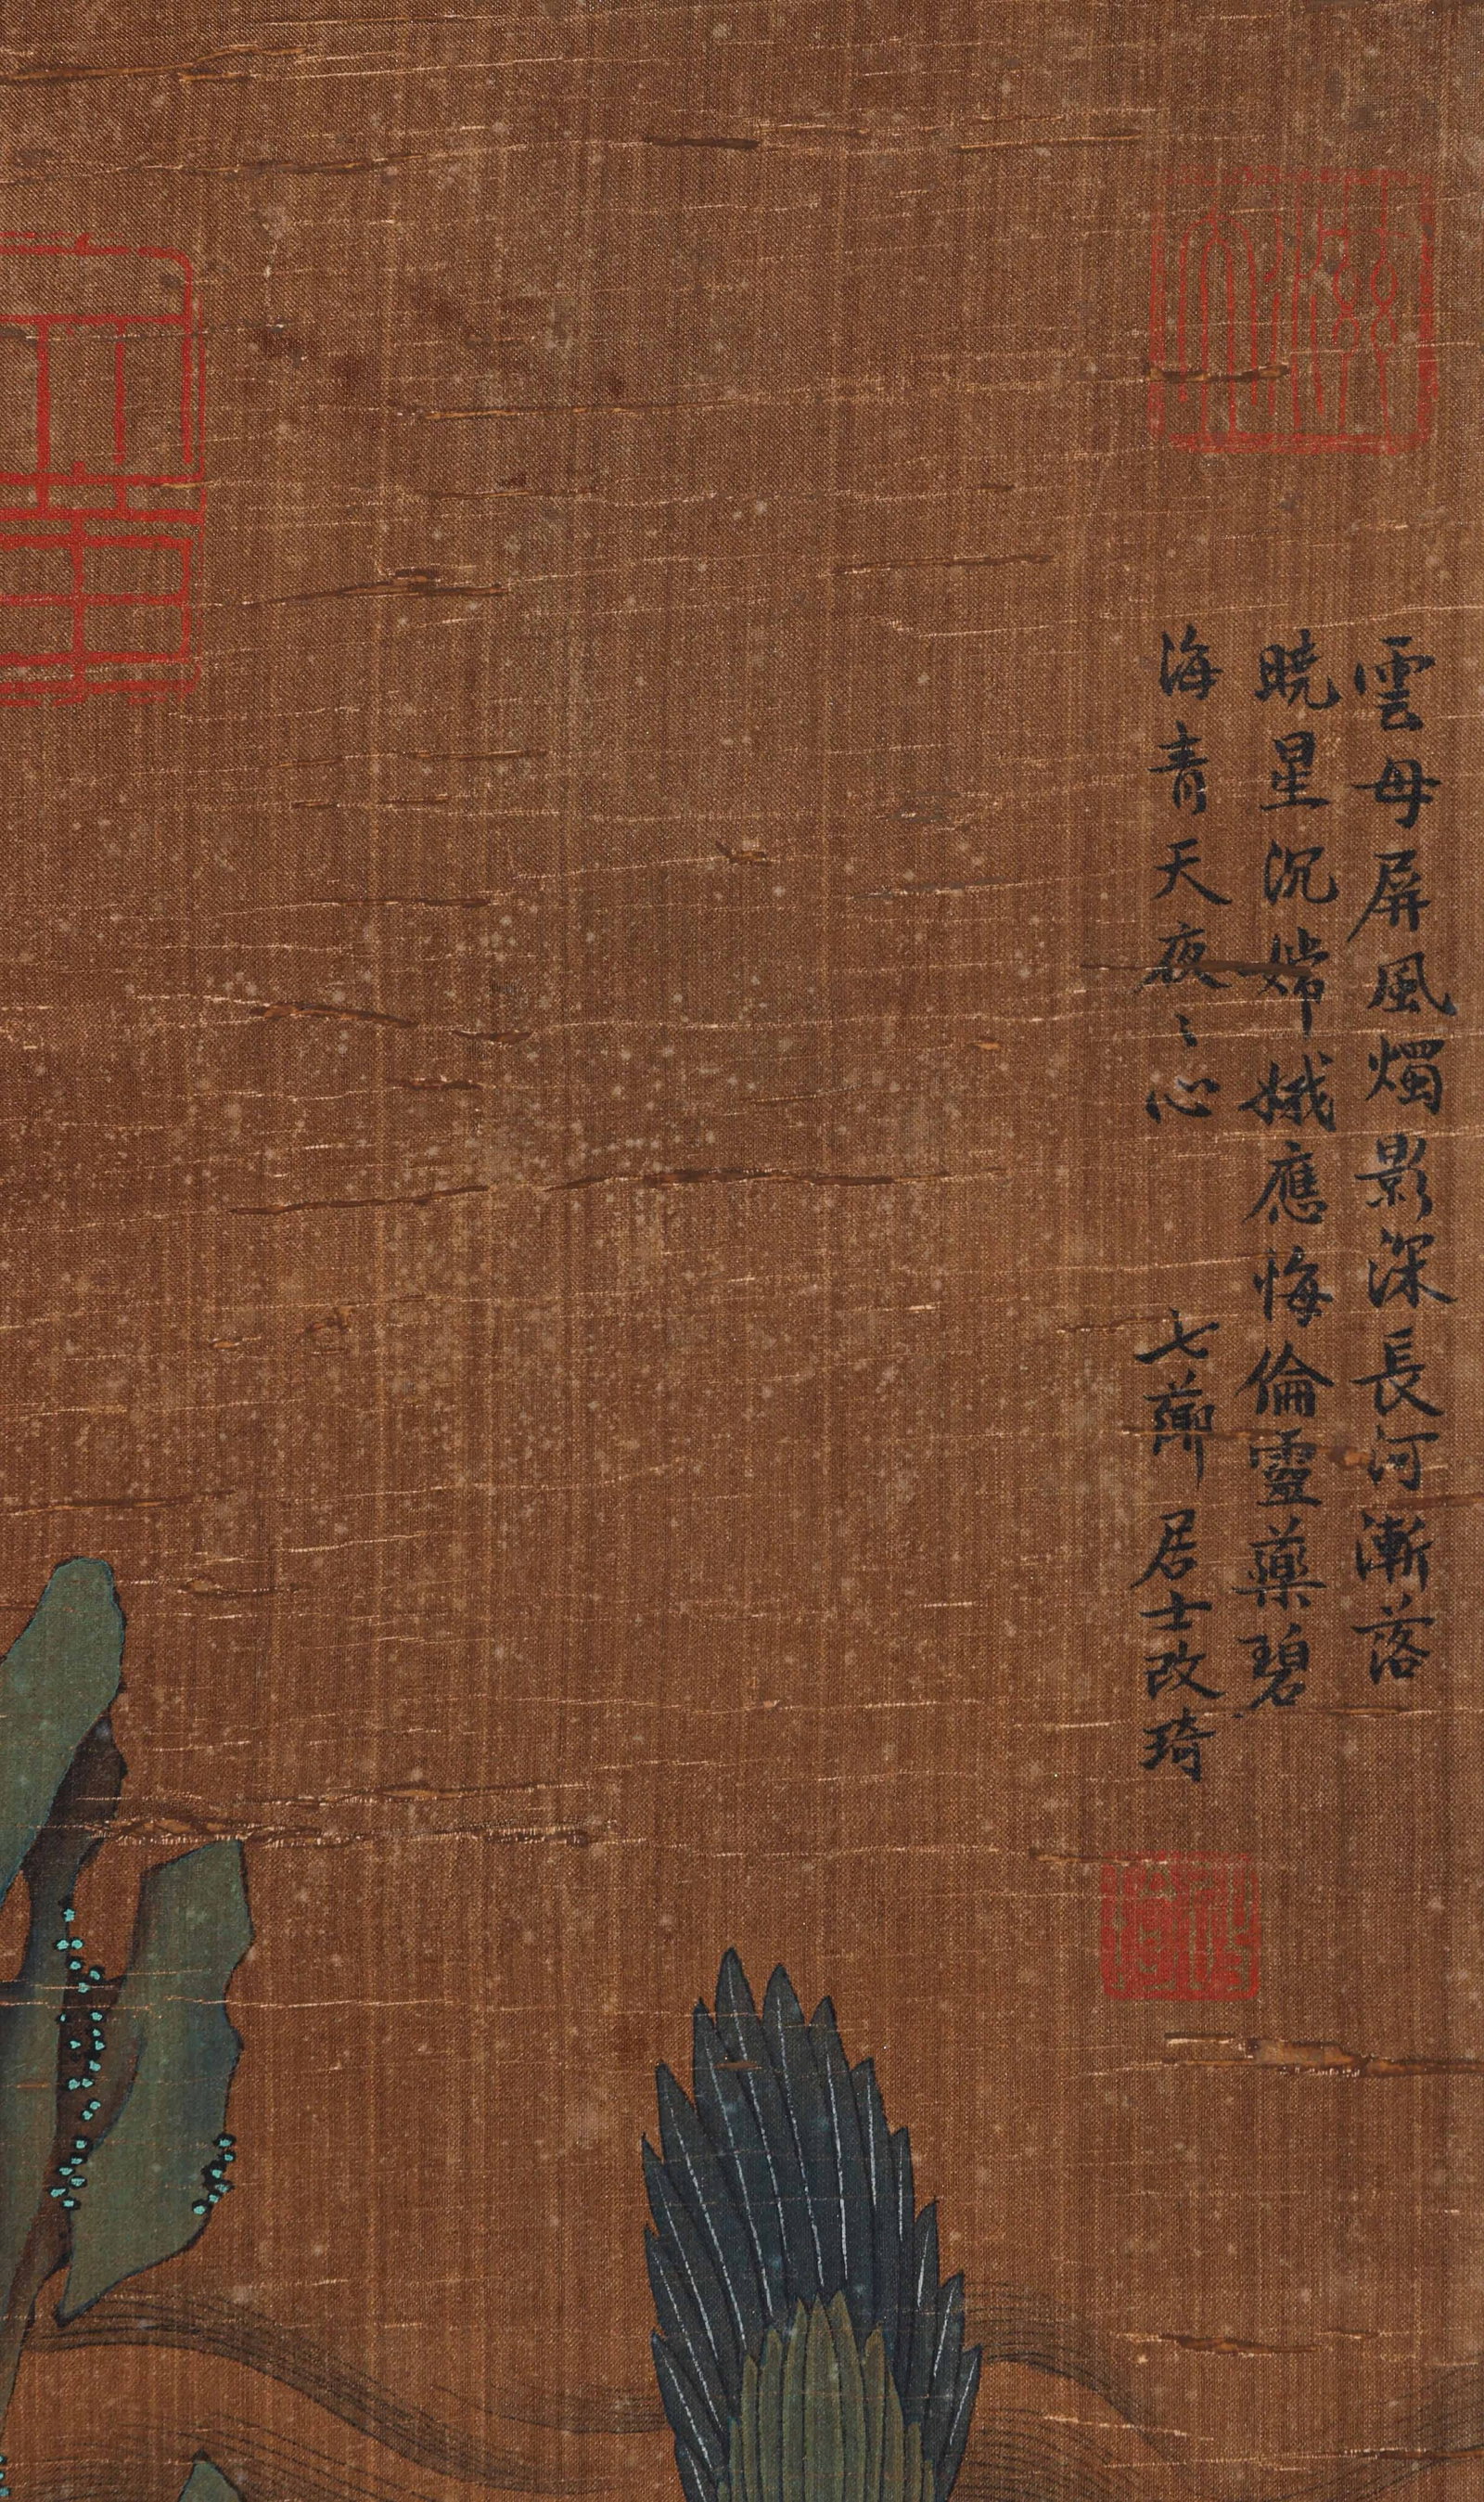 雲母屏風燭影深長河漸落
曉星沉嫦娥應悔倫靈藥碧
海青天夜〻心
七薌居士改琦